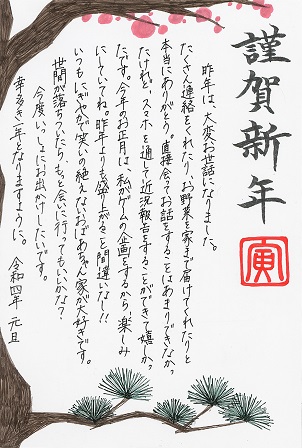 謹賀新年
寅
昨年は、大変お世話になりました。
たくさん連絡をくれたり、お野菜を家まで届けてくれたりと
本当にありがとう。直接会ってお話をすることはあまりできなかっ
たけれど、スマホを通して近況報告をすることができて嬉しかっ
たです。今年のお正月は、私がゲームの企画をするから楽しみ
にしていてね。昨年よりも盛り上がること間違いなし!!
いつもにぎやかで笑いの絶えないおばあちゃん家が大好きです。
世間が落ちついたら、もっと会いに行ってもいいかな?
今度いっしょにお出かけしたいです。
幸多き一年となりますように。
令和四年 元旦